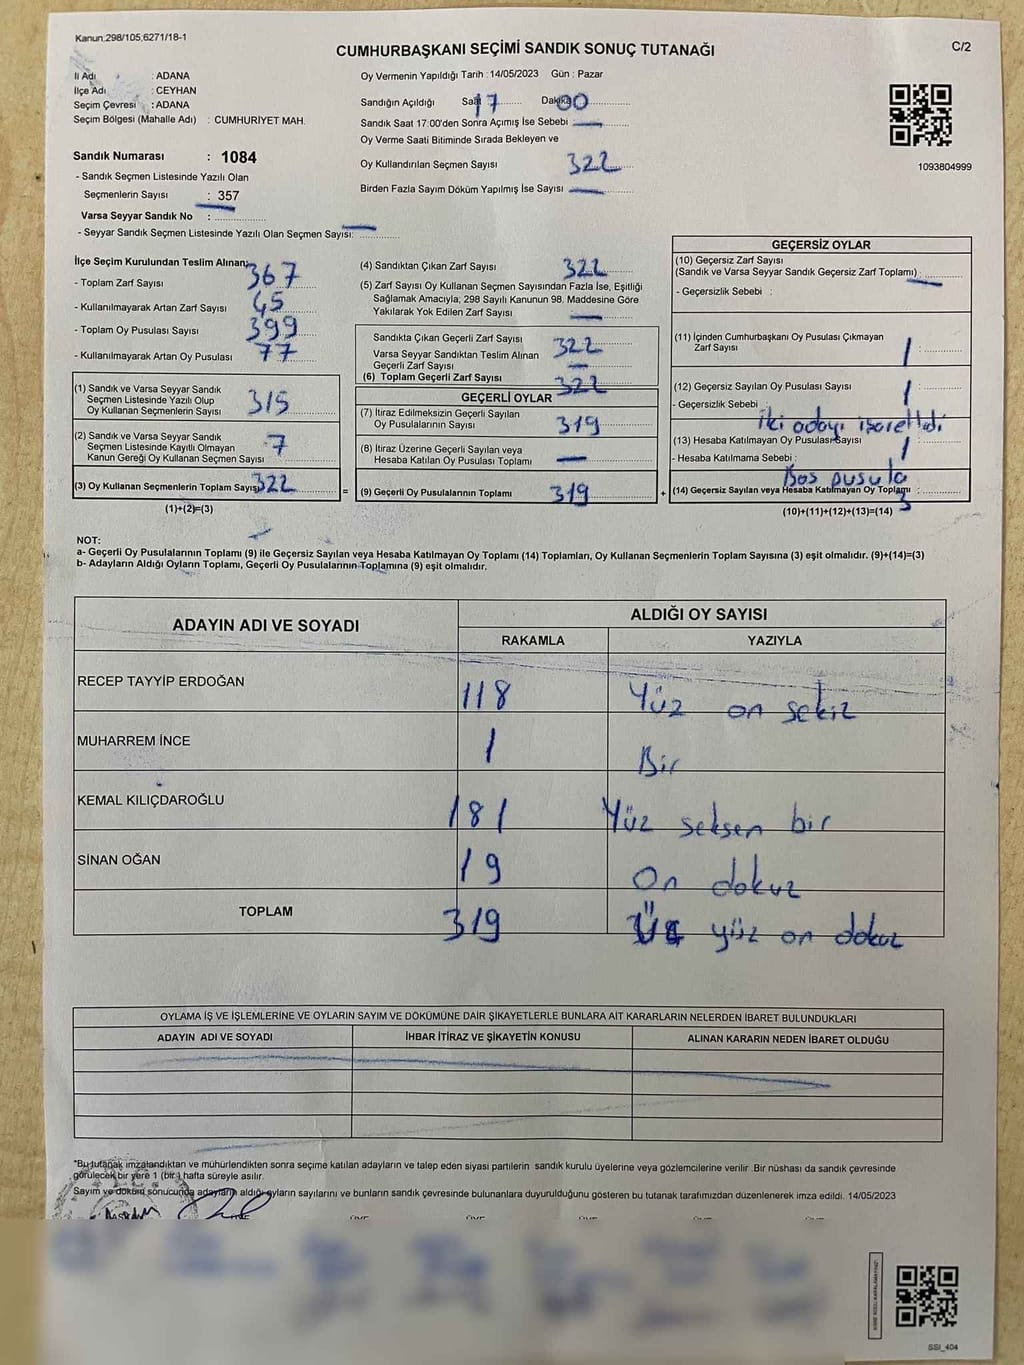 Kanun;298/105,6271/18-1
CUMHURBAŞKANI SEÇİMİ SANDIK SONUÇ TUTANAĞI
C/2
İl Adı : ADANA
İlçe Adı : CEYHAN
Seçim Çevresi : ADANA
Seçim Bölgesi (Mahalle Adı) : CUMHURİYET MAH.
Sandık Numarası : 1084
- Sandık Seçmen Listesinde Yazılı Olan
Seçmenlerin Sayısı : 357
Varsa Seyyar Sandık No :
- Seyyar Sandık Seçmen Listesinde Yazılı Olan Seçmen Sayısı:
Oy Vermenin Yapıldığı Tarih : 14/05/2023 Gün : Pazar
Sandığın Açıldığı Saat 17 Dakika 00
Sandık Saat 17:00'den Sonra Açımış İse Sebebi
Oy Verme Saati Bitiminde Sırada Bekleyen ve
Oy Kullandırılan Seçmen Sayısı 322
Birden Fazla Sayım Döküm Yapılmış İse Sayısı
1093804999
İlçe Seçim Kurulundan Teslim Alınan;
- Toplam Zarf Sayısı 367
- Kullanılmayarak Artan Zarf Sayısı 45
- Toplam Oy Pusulası Sayısı 399
- Kullanılmayarak Artan Oy Pusulası 77
(1) Sandık ve Varsa Seyyar Sandık
Seçmen Listesinde Yazılı Olup
Oy Kullanan Seçmenlerin Sayısı 315
(2) Sandık ve Varsa Seyyar Sandık
Seçmen Listesinde Kayıtlı Olmayan
Kanun Gereği Oy Kullanan Seçmen Sayısı 7
(3) Oy Kullanan Seçmenlerin Toplam Sayısı 322
(1)+(2)=(3)
(4) Sandıktan Çıkan Zarf Sayısı 322
(5) Zarf Sayısı Oy Kullanan Seçmen Sayısından Fazla İse, Eşitliği
Sağlamak Amacıyla; 298 Sayılı Kanunun 98. Maddesine Göre
Yakılarak Yok Edilen Zarf Sayısı
Sandıkta Çıkan Geçerli Zarf Sayısı 322
Varsa Seyyar Sandıktan Teslim Alınan
Geçerli Zarf Sayısı
(6) Toplam Geçerli Zarf Sayısı 322
GEÇERLİ OYLAR
(7) İtiraz Edilmeksizin Geçerli Sayılan
Oy Pusulalarının Sayısı 319
(8) İtiraz Üzerine Geçerli Sayılan veya
Hesaba Katılan Oy Pusulası Toplamı
= (9) Geçerli Oy Pusulalarının Toplamı 319 +
GEÇERSİZ OYLAR
(10) Geçersiz Zarf Sayısı
(Sandık ve Varsa Seyyar Sandık Geçersiz Zarf Toplamı) :
- Geçersizlik Sebebi :
(11) İçinden Cumhurbaşkanı Oy Pusulası Çıkmayan
Zarf Sayısı : 1
(12) Geçersiz Sayılan Oy Pusulası Sayısı : 1
- Geçersizlik Sebebi :
İki adayı işaretledi
(13) Hesaba Katılmayan Oy Pusulası Sayısı 1
- Hesaba Katılmama Sebebi :
Boş pusula
(14) Geçersiz Sayılan veya Hesaba Katılmayan Oy Toplamı : 3
(10)+(11)+(12)+(13)=(14)
NOT:
a- Geçerli Oy Pusulalarının Toplamı (9) ile Geçersiz Sayılan veya Hesaba Katılmayan Oy Toplamı (14) Toplamları, Oy Kullanan Seçmenlerin Toplam Sayısına (3) eşit olmalıdır. (9)+(14)=(3)
b- Adayların Aldığı Oyların Toplamı, Geçerli Oy Pusulalarının Toplamına (9) eşit olmalıdır.
ADAYIN ADI VE SOYADI
ALDIĞI OY SAYISI
RAKAMLA YAZIYLA
RECEP TAYYİP ERDOĞAN 118 Yüz on sekiz
MUHARREM İNCE 1 Bir
KEMAL KILIÇDAROĞLU 181 Yüz seksen bir
SİNAN OĞAN 19 On dokuz
TOPLAM 319 Üç yüz on dokuz
OYLAMA İŞ VE İŞLEMLERİNE VE OYLARIN SAYIM VE DÖKÜMÜNE DAİR ŞİKAYETLERLE BUNLARA AİT KARARLARIN NELERDEN İBARET BULUNDUKLARI
ADAYIN ADI VE SOYADI İHBAR İTİRAZ VE ŞİKAYETİN KONUSU ALINAN KARARIN NEDEN İBARET OLDUĞU
*Bu tutanak imzalandıktan ve mühürlendikten sonra seçime katılan adayların ve talep eden siyasi partilerin sandık kurulu üyelerine veya gözlemcilerine verilir .Bir nüshası da sandık çevresinde
görülecek bir yere 1 (bir ) hafta süreyle asılır.
Sayım ve döküm sonucunda adayların aldığı oyların sayılarını ve bunların sandık çevresinde bulunanlara duyurulduğunu gösteren bu tutanak tarafımızdan düzenlenerek imza edildi. 14/05/2023
BAŞKAN ÜYE ÜYE ÜYE ÜYE ÜYE ÜYE
SSI_404